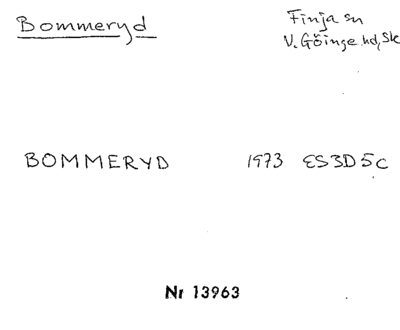 Bommeryd
Finja sn
V. Göinge hd, Sk
BOMMERYD 1973 ES3D5c
Nr 13963